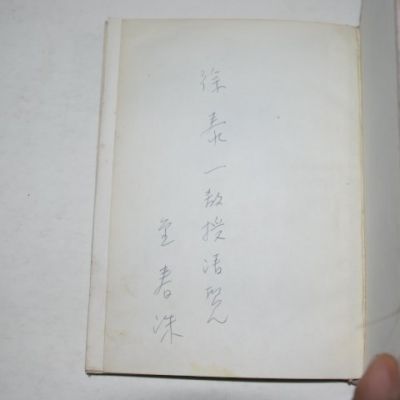 徐泰一教授清覽
金春洙